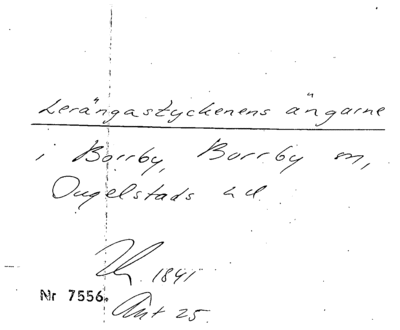 Lerängastyckenens ängarne
i Borrby, Borrby sn,
Ingelstads hd
1841
Nr 7556.
Ant 25